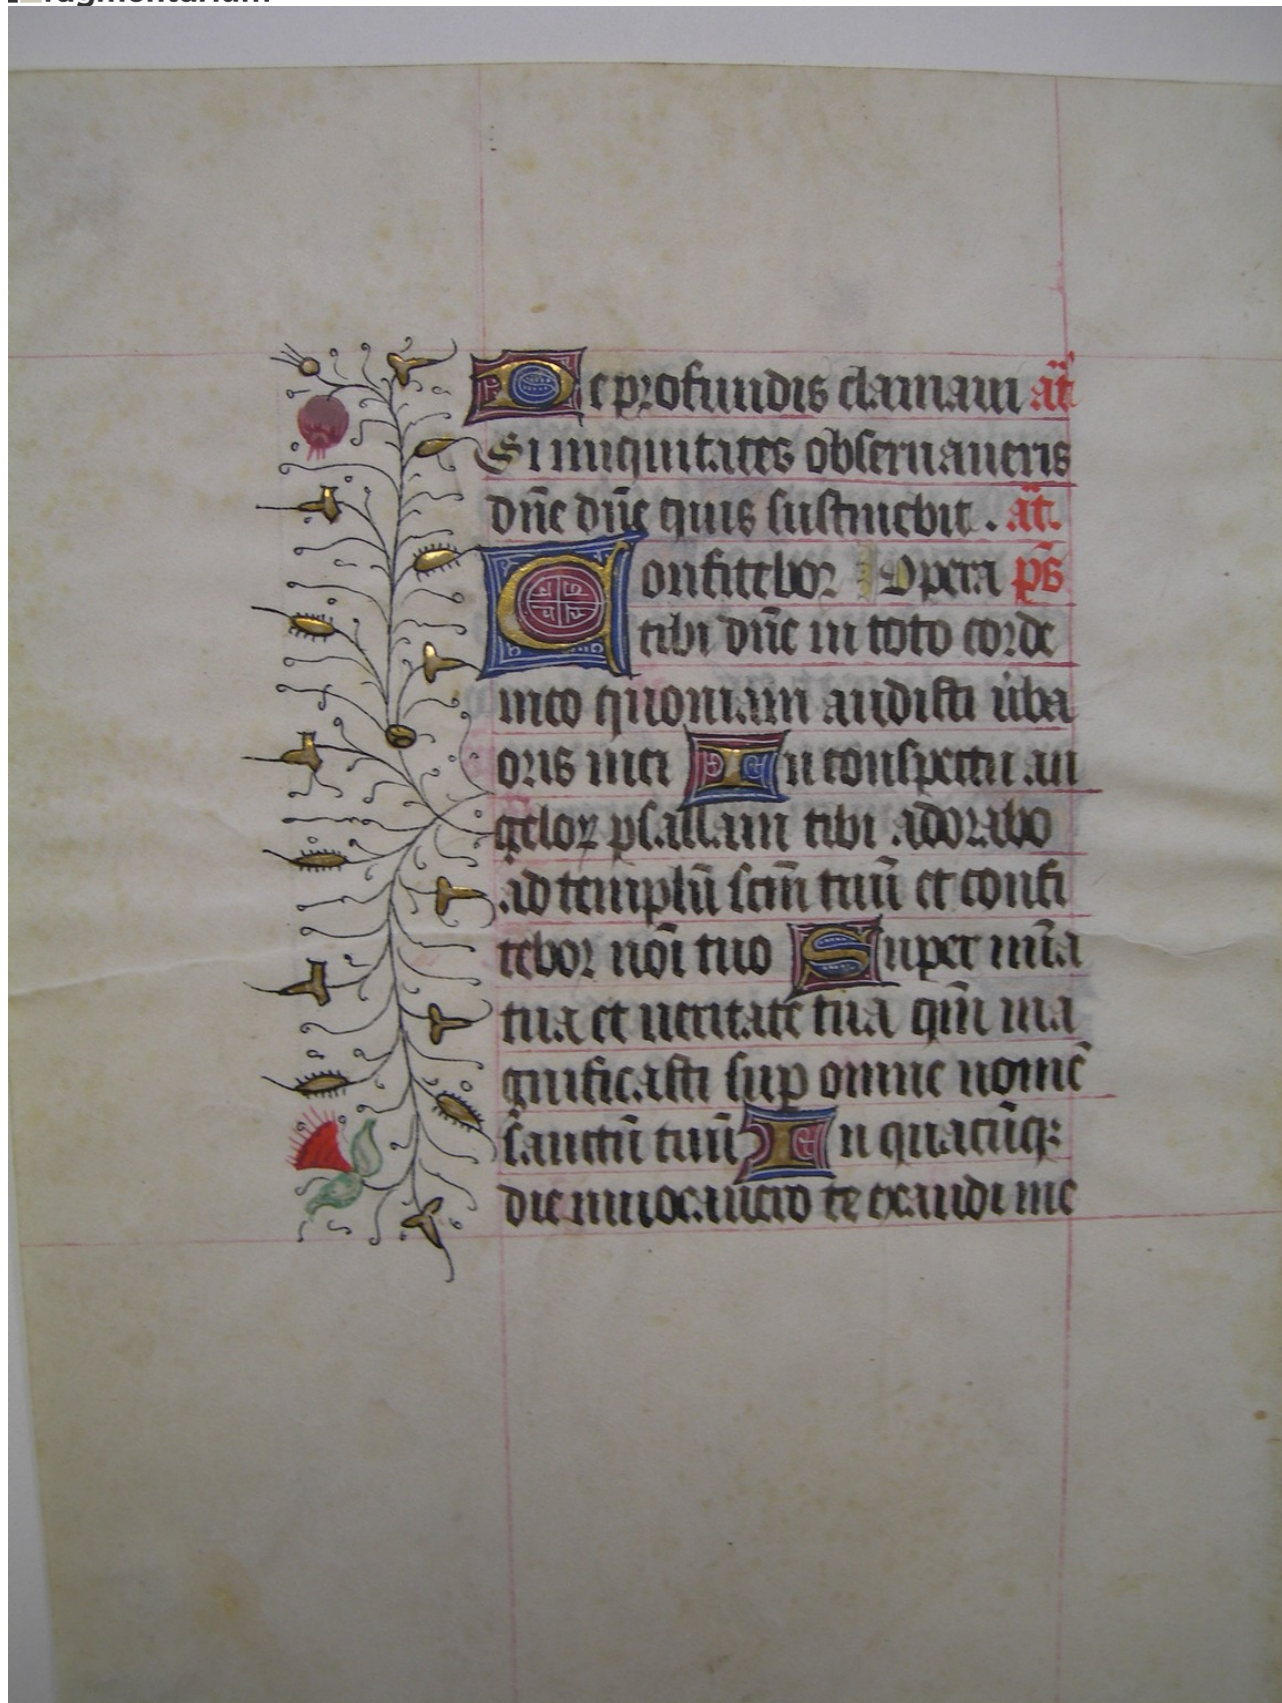 De profundis clamaui añ
Si iniquitates obseruaueris
dñe dñe quis sustinebit . añ.
Confitebor Opera ps̄
tibi dñe in toto corde
meo quoniam audisti u̇ba
oris mei In conspectu an
geloꝝ psallam tibi adorabo
ad templū scm̄ tuū et confi
tebor noī tuo Super mīa
tua et ueritate tua qm̄ ma
gnificasti sup omne nomē
sanctū tuū In quacūqꝫ
die inuocauero te exaudi me